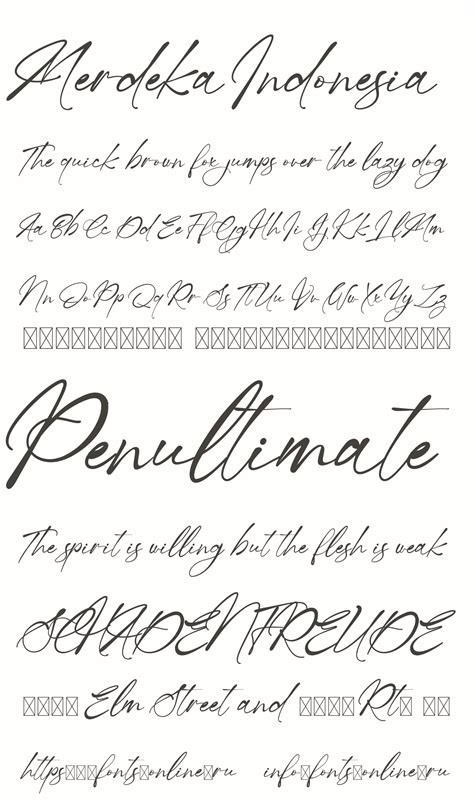 Merdeka Indonesia
The quick brown fox jumps over the lazy dog
Aa Bb Cc Dd Ee Ff Gg Hh Ii Jj Kk Ll Mm
Nn Oo Pp Qq Rr Ss Tt Uu Vv Ww Xx Yy Zz
Penultimate
The spirit is willing but the flesh is weak
SCHADENFREUDE
Elm Street and Rt
https fonts online ru info fonts online ru